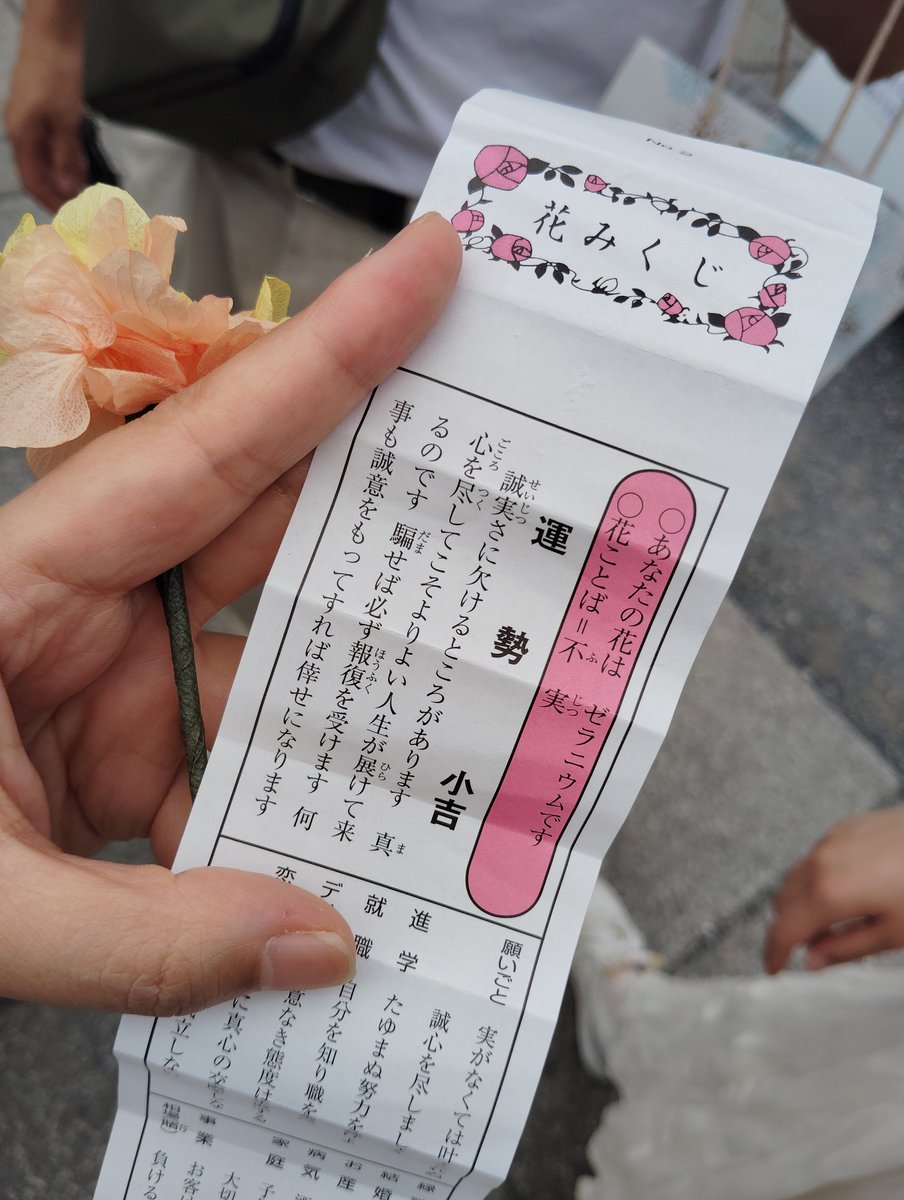 No 2
花みくじ
○あなたの花は ゼラニウムです
○花ことば＝不実
ふ じつ
運勢 小吉
誠実さに欠けるところがあります 真
せいじつ
ま
心を尽してこそよりよい人生が展けて来
こころ つく ひら
るのです 騙せば必ず報復を受けます 何
だま ほうふく
事も誠意をもってすれば倖せになります
願いごと 実がなくては叶
誠心を尽しまし
進学 たゆまぬ努力を
就職 自分を知り職を
デ 意なき態度は
恋 に真心の
立しな
結婚
お産
病気
家庭 子
大切
事業 お客
相場
負ける